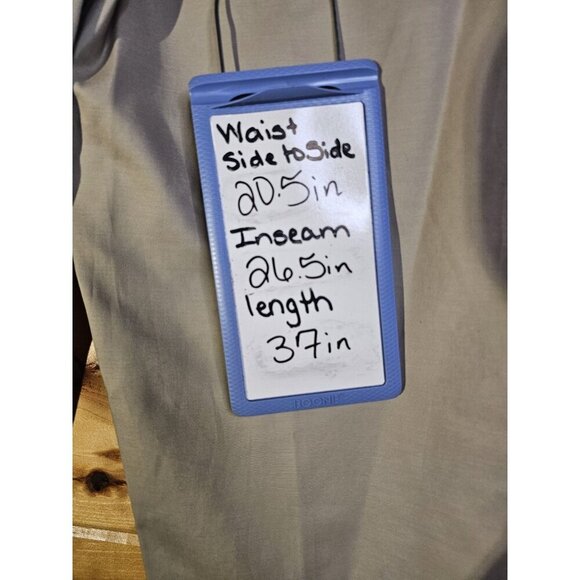 Waist
Side to Side
20.5in
Inseam
26.5in
length
37in